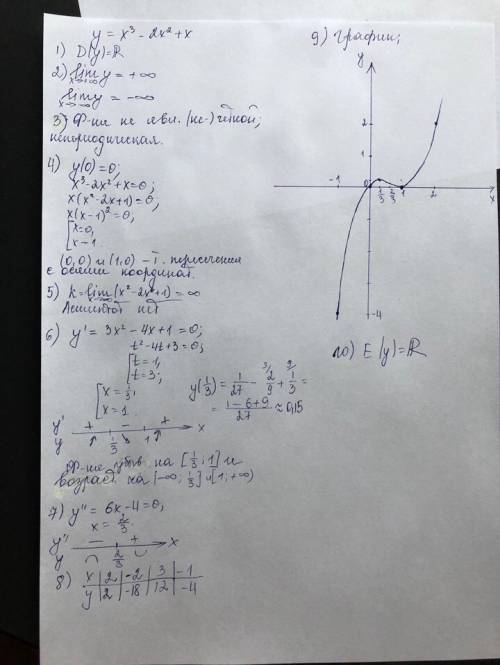 y = x³ - 2x² + x
1) D(y)=ℝ
2) lim y = +∞
x→+∞
lim y = -∞
x→-∞
3) Ф-ия не явл. (не-) чётной,
непериодическая.
4) y(0)=0;
x³-2x²+x=0;
x(x²-2x+1)=0;
x(x-1)²=0;
[x=0,
x=1.
(0,0) и (1,0) – т. пересечения
с осями координат.
5) k=lim(x²-2x²+1)=∞
Асимптот нет
6) y' = 3x² - 4x + 1 = 0;
t²-4t+3=0;
[t=1,
t=3;
[x=1/3,
x=1.
y(1/3) = 1/27 - 2/9 + 1/3 =
3/ 9/
= (1-6+9)/27 ≈ 0,15
y' + - + x
y 1/3 1
Ф-ия убыв на [1/3; 1] и
возраст. на [-∞; 1/3] и [1; +∞)
7) y'' = 6x-4=0,
x = 2/3.
y'' - + x
y 2/3
8) x | 2 | -2 | 3 | -1
y | 2 | -18 | 12 | -4
9) График;
y
2
1
-1 0 1/3 2/3 1 2 x
-4
10) E(y)=ℝ